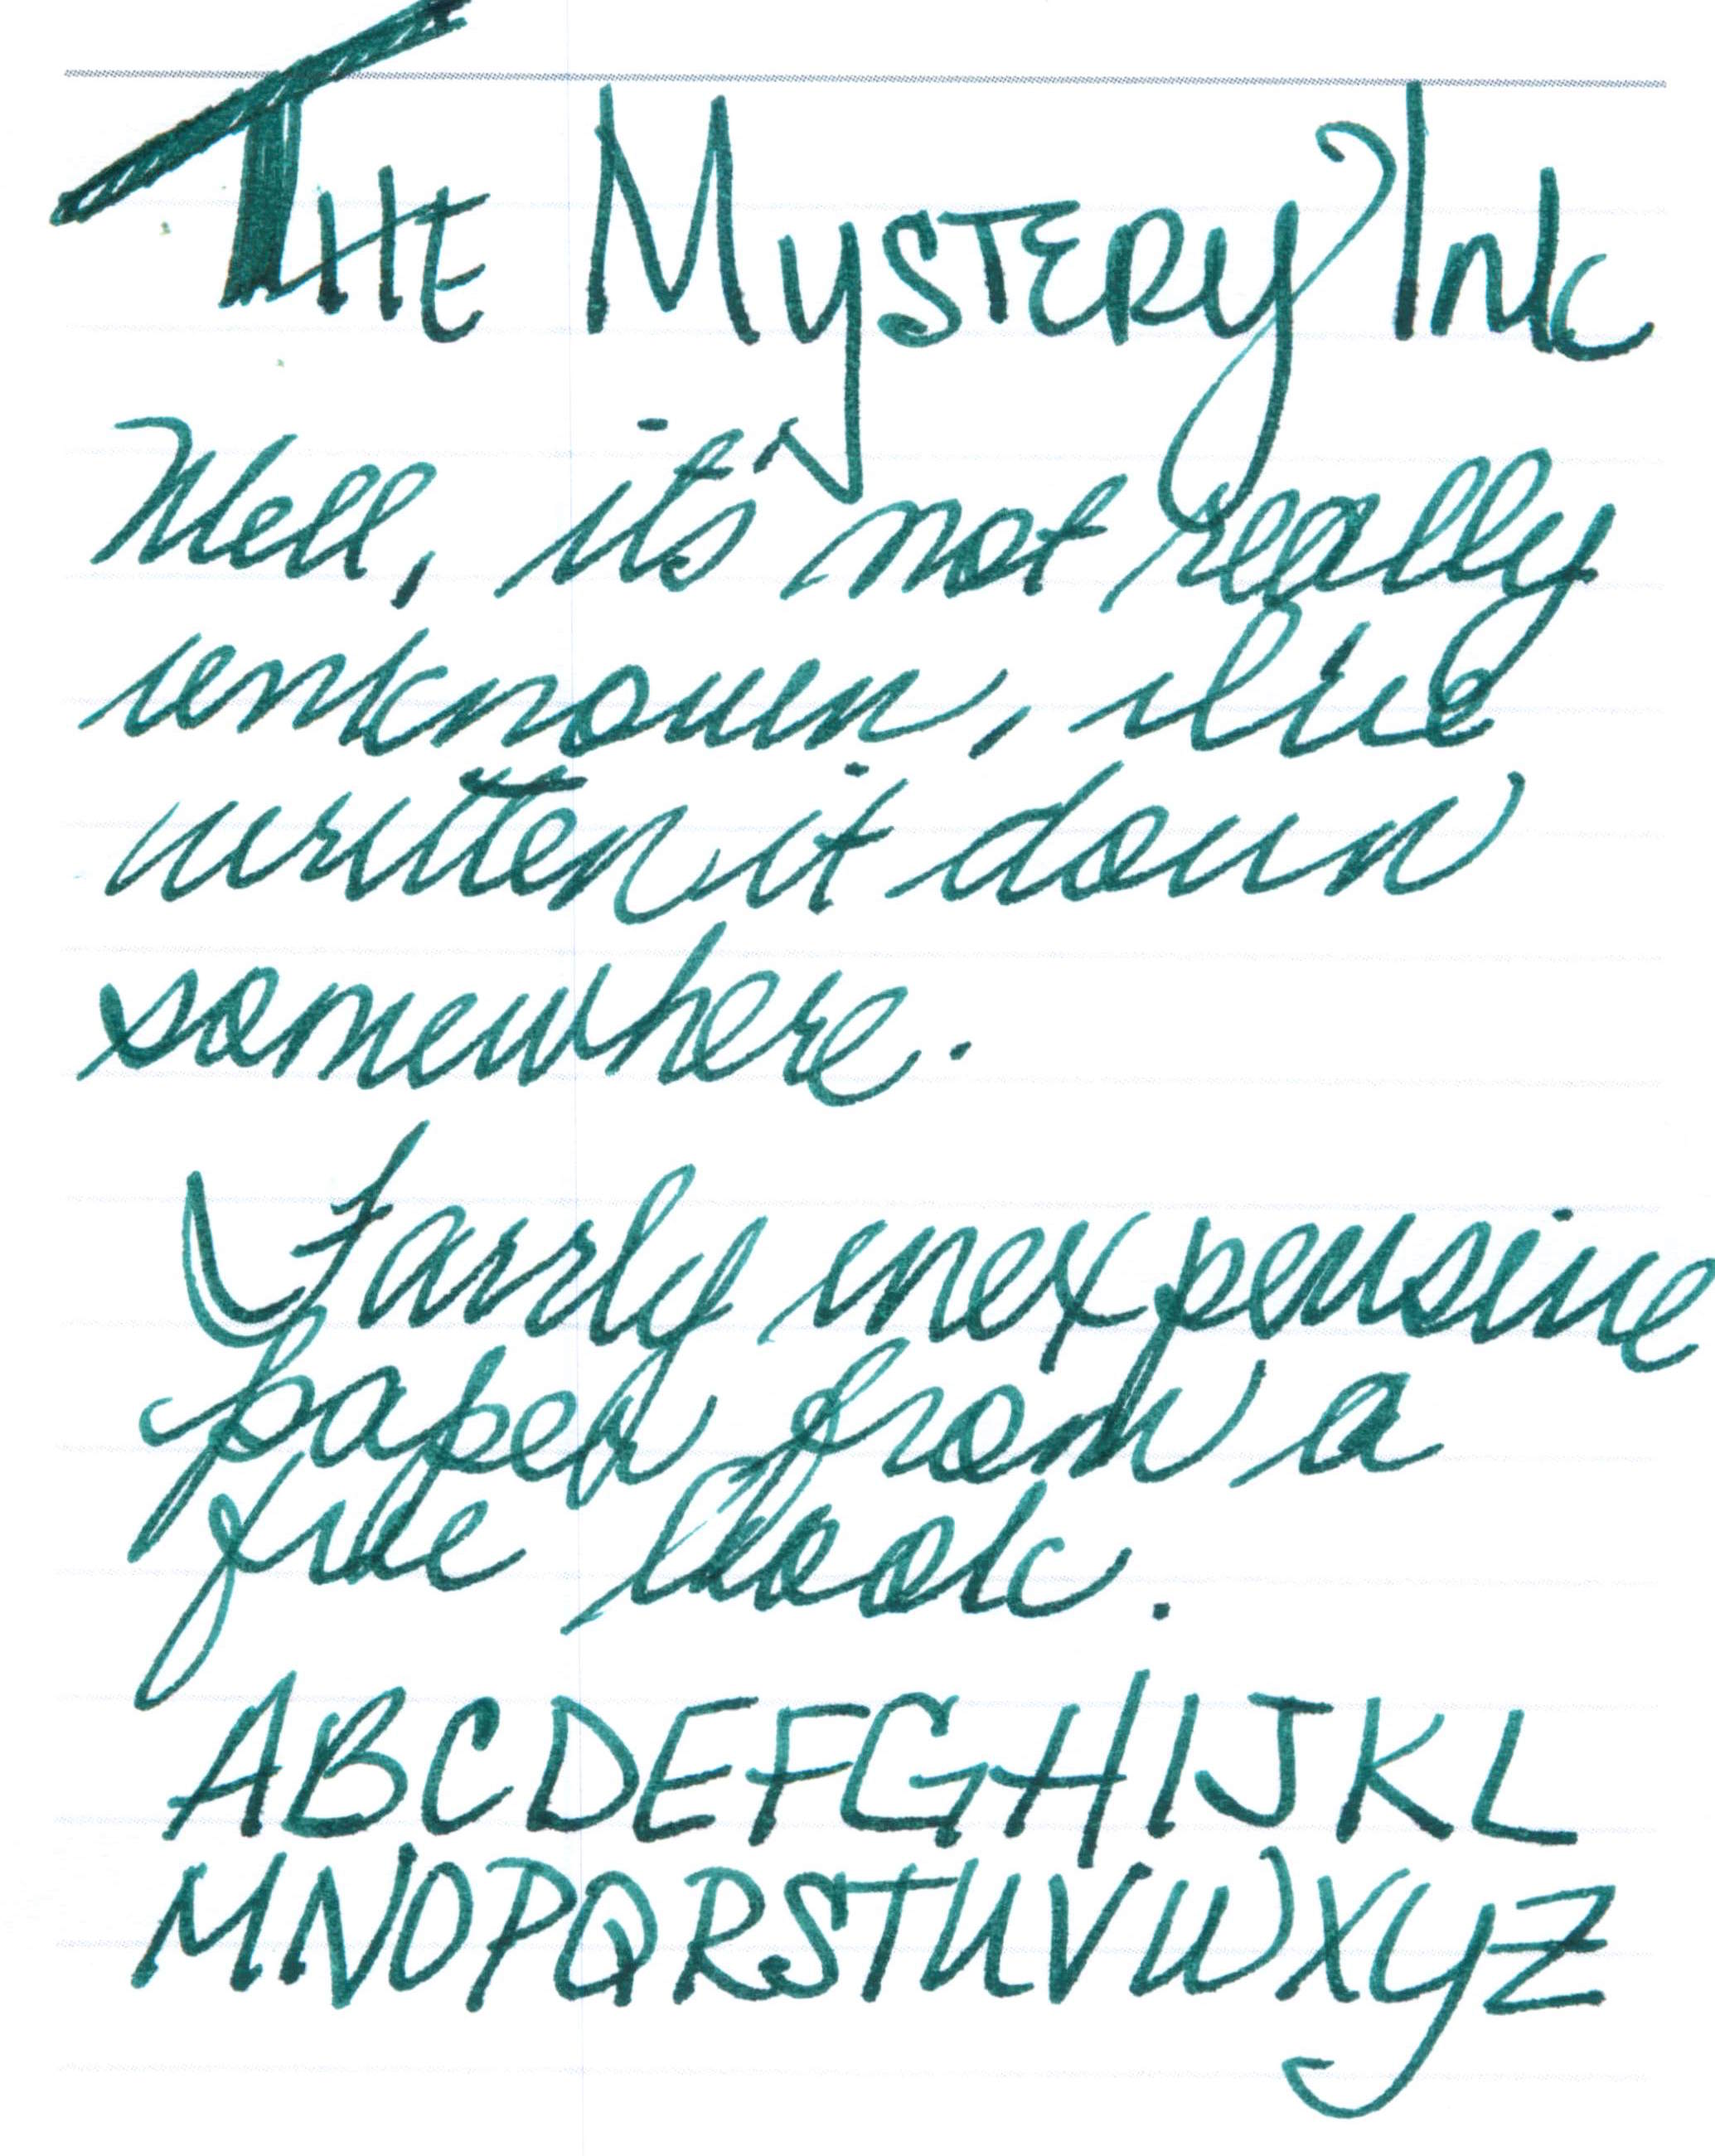 The Mystery Ink
Well, it's not really
unknown, I've
written it down
somewhere.
Fairly inexpensive
paper from a
free book.
ABCDEFGHIJKL
MNOPQRSTUVWXYZ